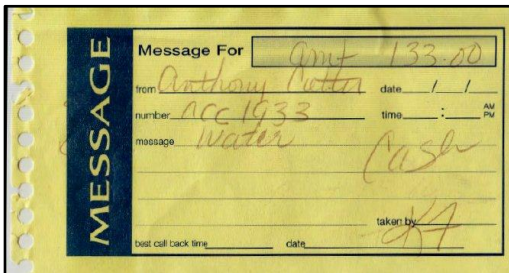 MESSAGE
Message For amt 133.00
from Anthony Cotter date / /
number acc 1933 time : AM PM
message Water
Cash
taken by KA
best call back time date